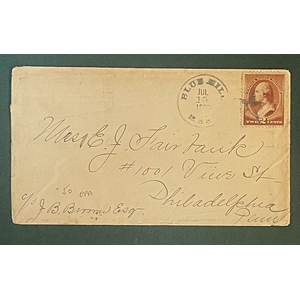 BLUE HILL
JUL
15
TWO CENTS
Miss E. J. Fairbank
#1001 Vine St
Philadelphia
Penn
c/o J. B. Esq.